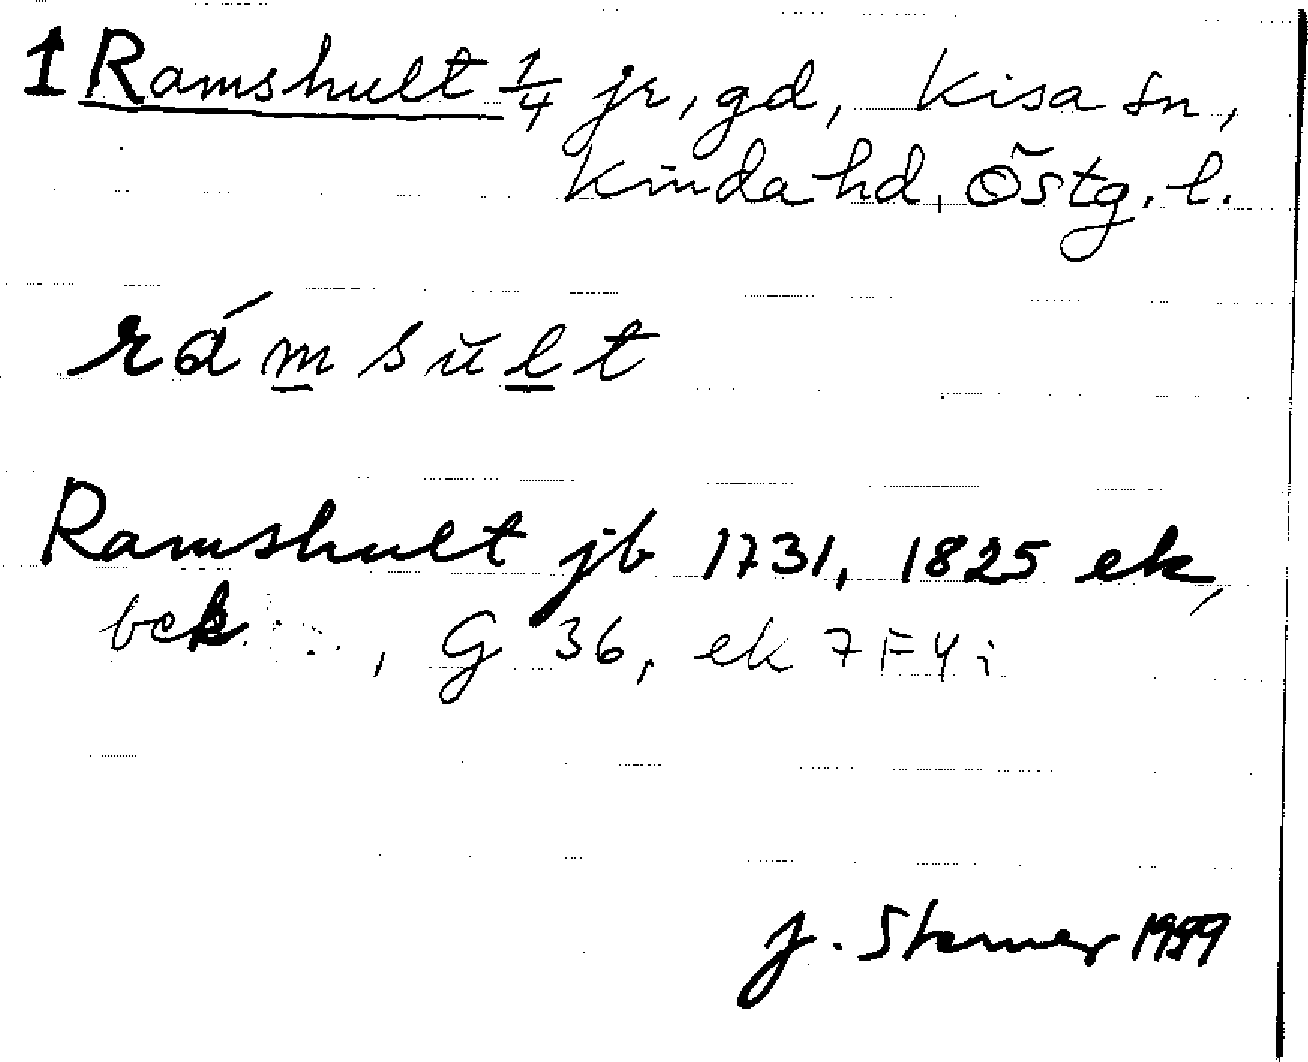 1 Ramshult 1/4 jr, gd, Kisa sn,
Kinda hd, Östg. l.
rámsult
Ramshult jb 1731, 1825 ek,
bek , G 36, ek 7F4i
J. 19